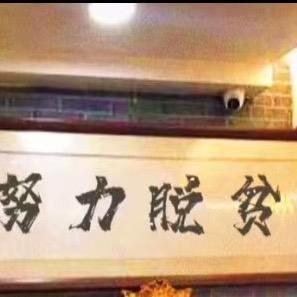 努力脱贫